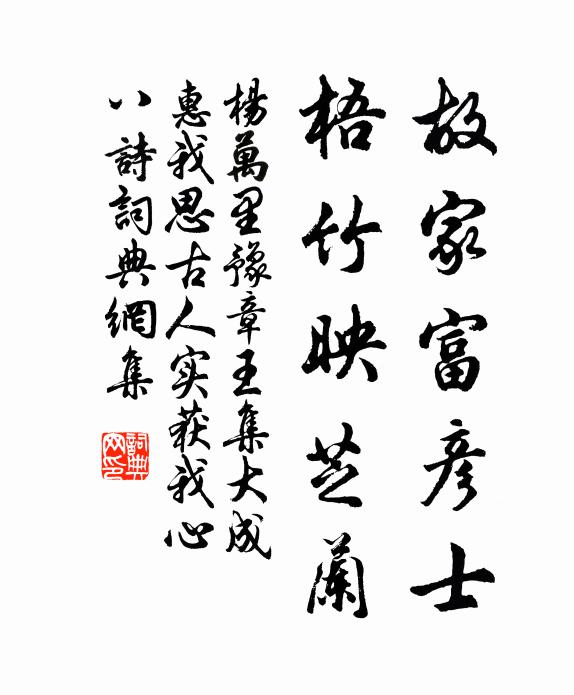 故家富彥士
梧竹映芝蘭
楊萬里豫章王集大成
惠我思古人实获我心
八詩詞典網集
詞典网印